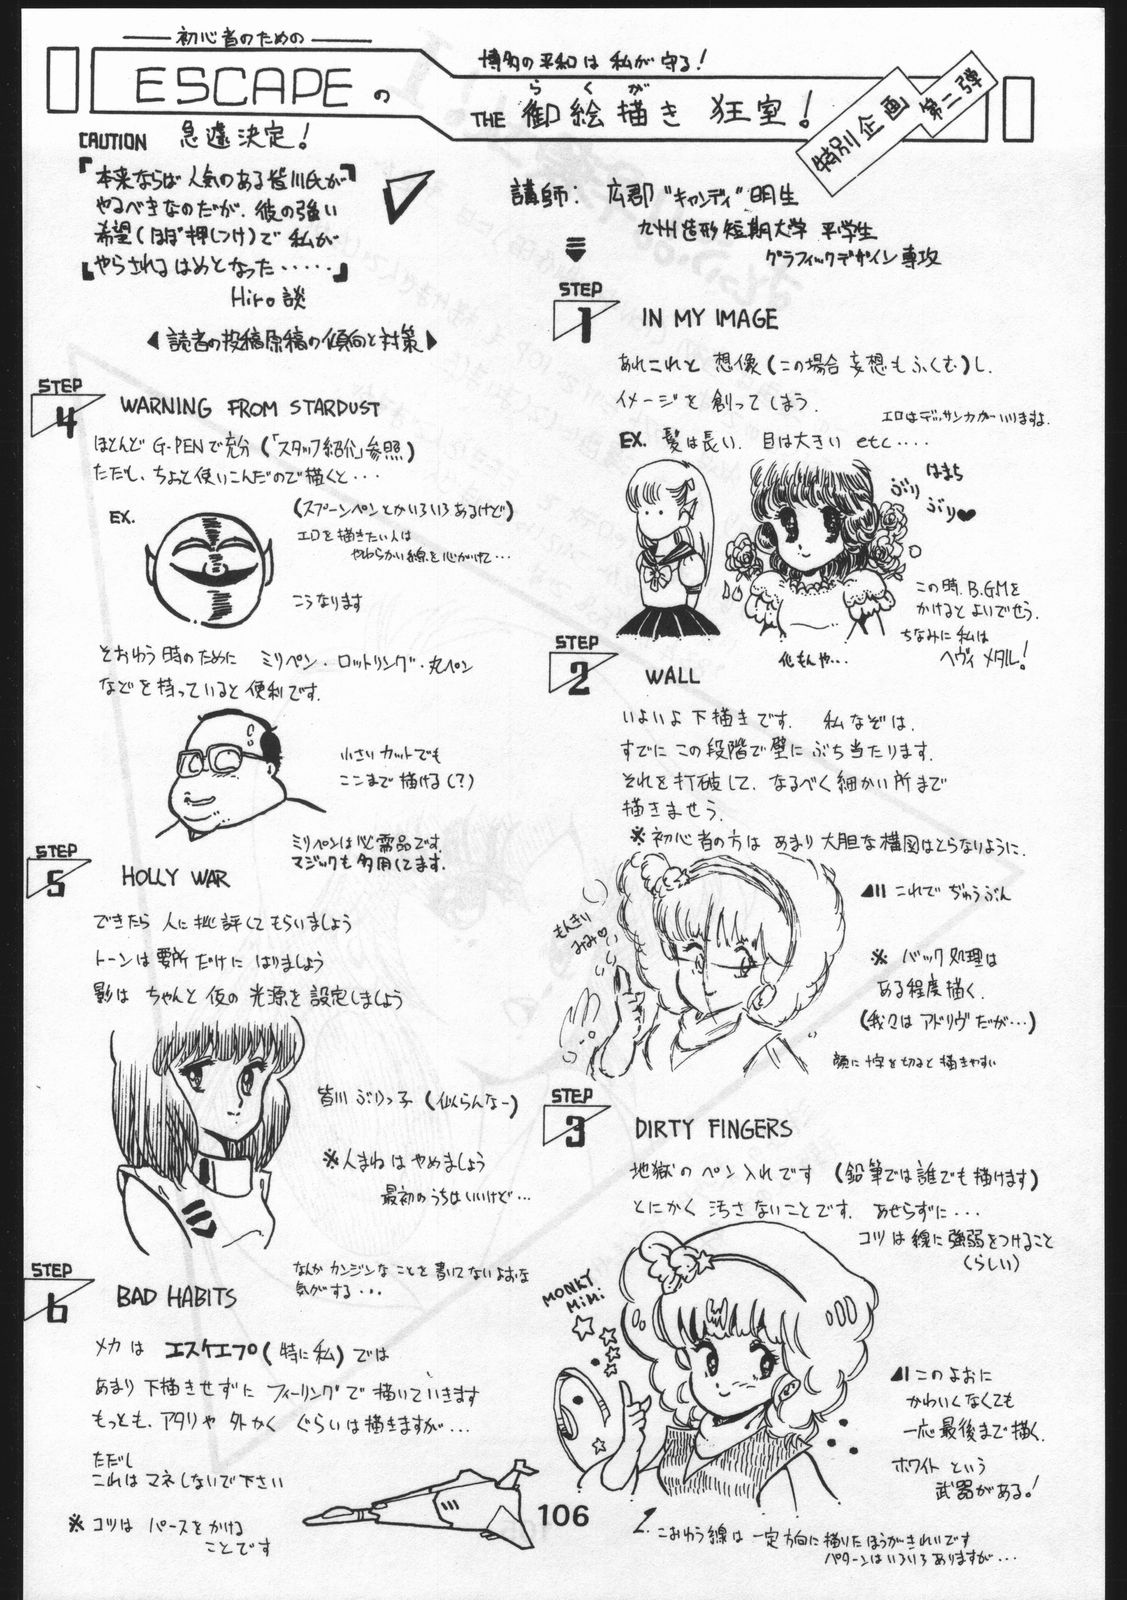 初心者のための
ESCAPEの
博多の平和は私が守る!
らくがき
THE 御絵描き 狂室!
特別企画
第二弾
CAUTION 急遽決定!
『本来ならば人気のある皆川氏が
やるべきなのだが、彼の強い
希望(ほぼ押しつけ)で私が
やらされるはめとなった・・・・・』
Hiro談
◀読者の投稿原稿の傾向と対策▶
講師: 広郡“キャンディ”明生
九州造形短期大学 平学生
グラフィックデザイン専攻
STEP
1 IN MY IMAGE
あれこれと 想像(この場合 妄想もふくむ)し、
イメージを 創ってしまう.
エロはデッサンカがいりますよ.
EX. 髪は長い. 目は大きい etc・・・・
はまち
ぶり
ぶり♥
この時、B.G.Mを
かけるとよいでせう.
ちなみに私は
ヘヴィメタル!
化もんや・・・
STEP
2 WALL
いよいよ 下描きです. 私なぞは、
すでに この段階で壁に ぶち当たります.
それを打破して、なるべく細かい所まで
描きませう.
※初心者の方は あまり 大胆な構図はとらないように.
もんきり
みみ♡
これで ぢゅうぶん
※ バック処理は
ある程度描く.
(我々は アドリヴだが・・・)
顔に十字を切ると描きやすい
STEP
3 DIRTY FINGERS
地獄の ペン入れです (鉛筆では誰でも描けます)
とにかく 汚さないことです. あせらずに・・・
コツは線に強弱をつけること
(らしい)
MONKY
MiMi
このよおに
かわいくなくても
一応最後まで描く.
ホワイト という
武器がある!
こおゆう線は 一定方向に描いたほうがきれいです
パターンはいろいろありますが・・・
STEP
4 WARNING FROM STARDUST
ほとんど G-PENで充分 (「スタッフ紹介」参照)
ただし、ちょっと使いこんだので描くと・・・
EX.
(スプーンペンとかいろいろあるけど)
エロを描きたい人は
やわらかい線を心がけて・・・
こうなります
そおゆう時のために ミリペン・ロットリング・丸ペン
などを持っていると便利です.
小さいカットでも
ここまで描ける(?)
ミリペンは必需品です.
マジックも多用してます.
STEP
5 HOLLY WAR
できたら 人に批評してもらいましょう
トーンは要所だけに はりましょう
影は ちゃんと仮の光源を設定しましょう
皆川 ぶりっ子 (似らんなー)
※人まねはやめましょう
最初のうちはいいけど・・・
なんか カンジンな ことを書いてないよおな
気がする・・・
STEP
6 BAD HABITS
メカは エスケエプ(特に私)では
あまり下描きせずに フィーリングで描いていきます
もっとも、アタリや外かく ぐらいは描きますが・・・
ただし
これはマネしないで下さい
※ コツは パースをかける
ことです
106